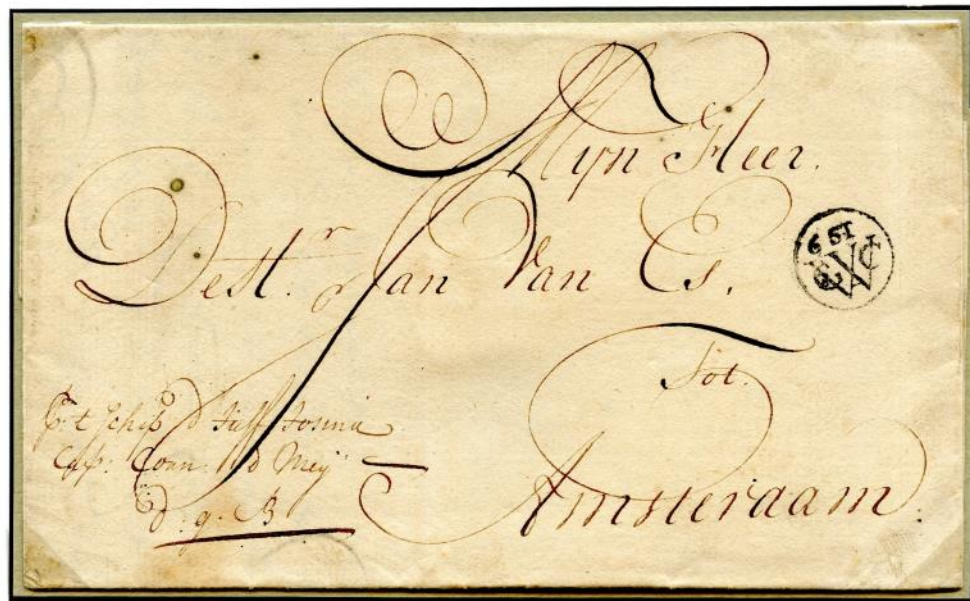 Mijn Heer.
De Hr. Jan Van Es.
Tot.
Amsterdam.
p. t schip d Juff Josina
Cap: Coen: d Meij
d. g. B